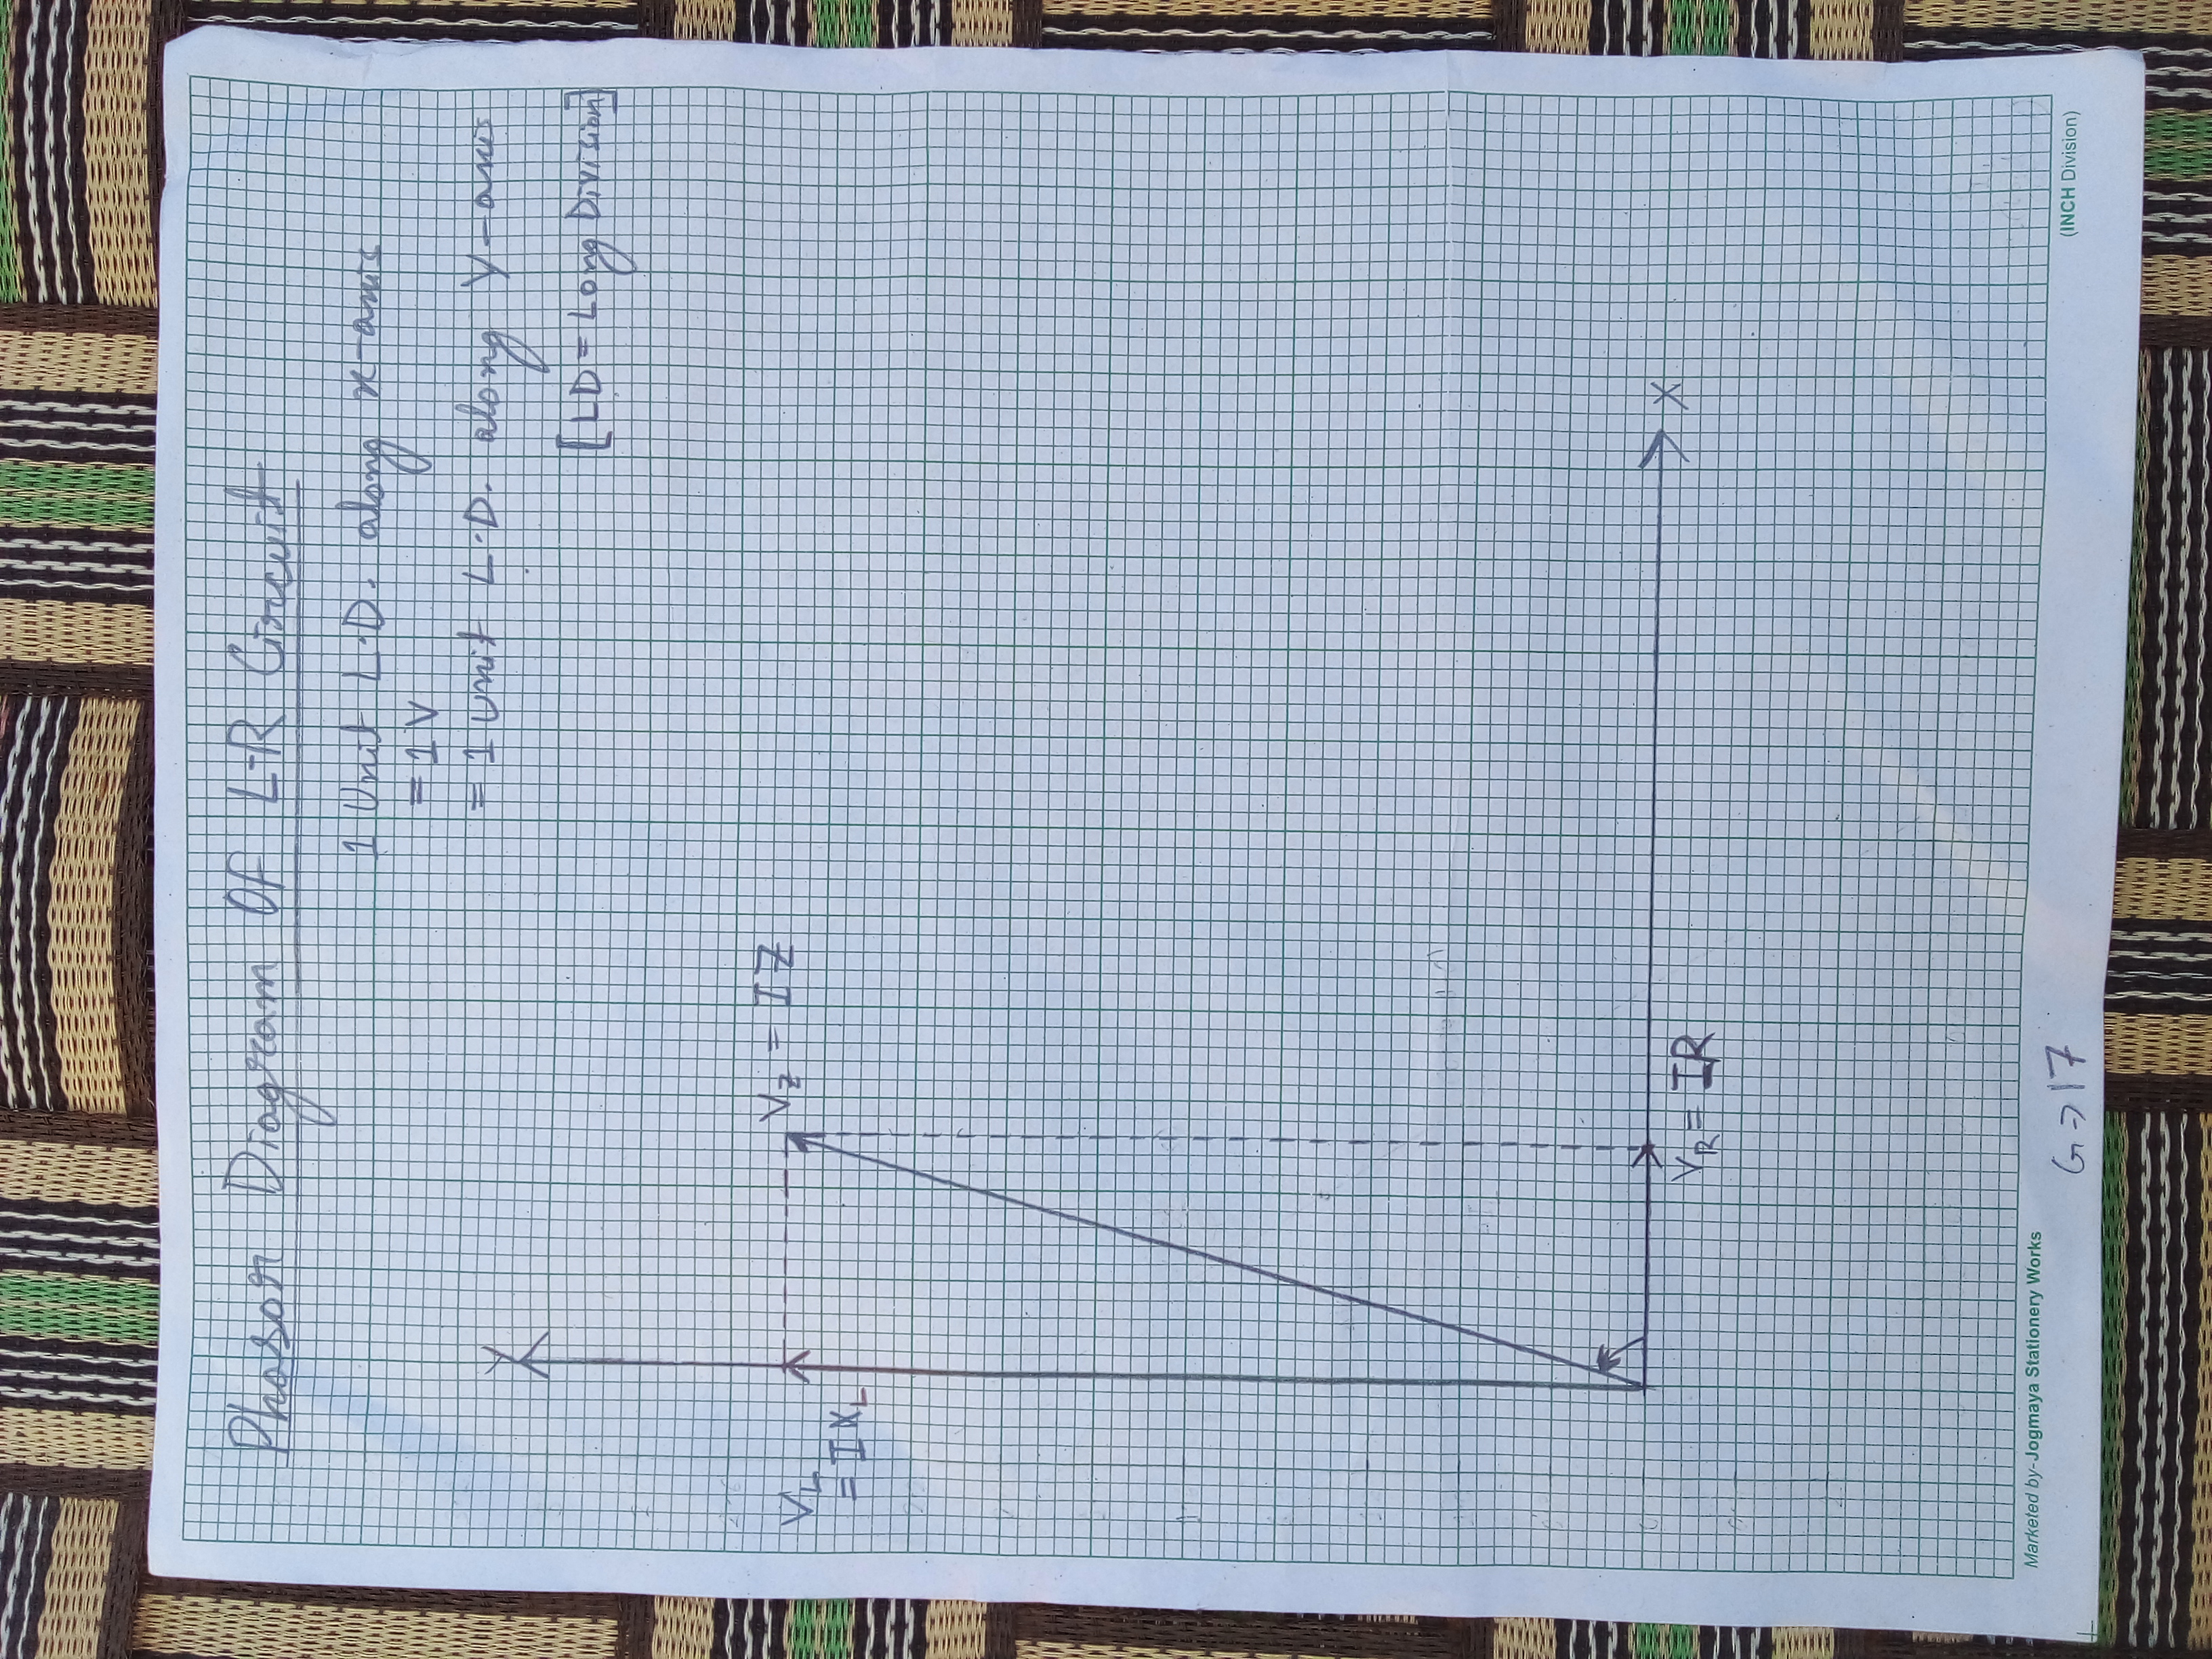 Phasor Diagram Of L-R Circuit
1 Unit L.D. along x-axis
= 1 V
= 1 unit L.D. along Y-axis
[LD = Long Division]
Y
V_Z = IZ
V_L
= IX_L
X
V_R = IR
Marketed by-Jogmaya Stationery Works
(INCH Division)
G → 17